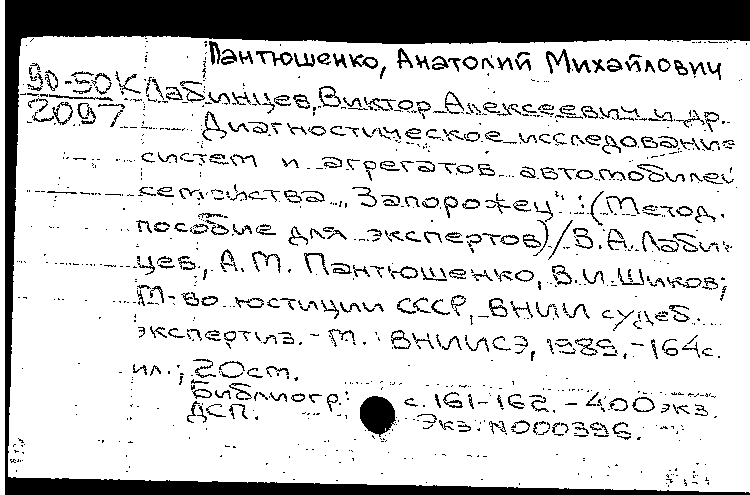 Пантюшенко, Анатолий Михайлович
90-50К
2097
Лабинцев, Виктор Алексеевич и др.
Диагностическое исследование
систем и агрегатов автомобилей
семейства „Запорожец“ : (Метод.
пособие для экспертов) / В.А. Лабин-
цев, А.М. Пантюшенко, В.И. Шиков;
М-во юстиции СССР, ВНИИ судеб.
экспертиз. - М. : ВНИИСЭ, 1989. - 164с.
ил.; 20см.
Библиогр.: с. 161-162. - 400экз.
ДСП. Экз. N000396.